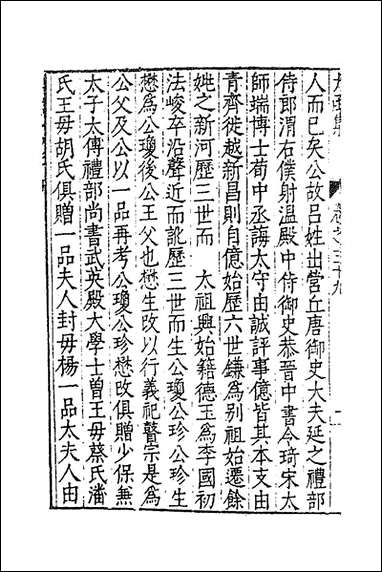 卷之三十九
人而已矣公故呂姓出營丘唐御史大夫延之禮部
侍郎渭右僕射温殿中侍御史恭晉中書令琦宋太
師端博士荀中丞誨太守由誠評事億皆其本支由
青齊徙越新昌則自億始歷六世鎌爲别祖始遷餘
姚之新河歷三世而　太祖興始籍德玉爲李國初
法峻卒沿聲近而訛歷三世而生公瓊公珍公珍生
懋爲公瓊後公王父也懋生改以行義祀瞽宗是爲
公父及公以一品再考公瓊公珍懋改俱贈少保兼
太子太傅禮部尚書武英殿大學士曾王毋蔡氏潘
氏王毋胡氏俱贈一品夫人封毋楊一品太夫人由